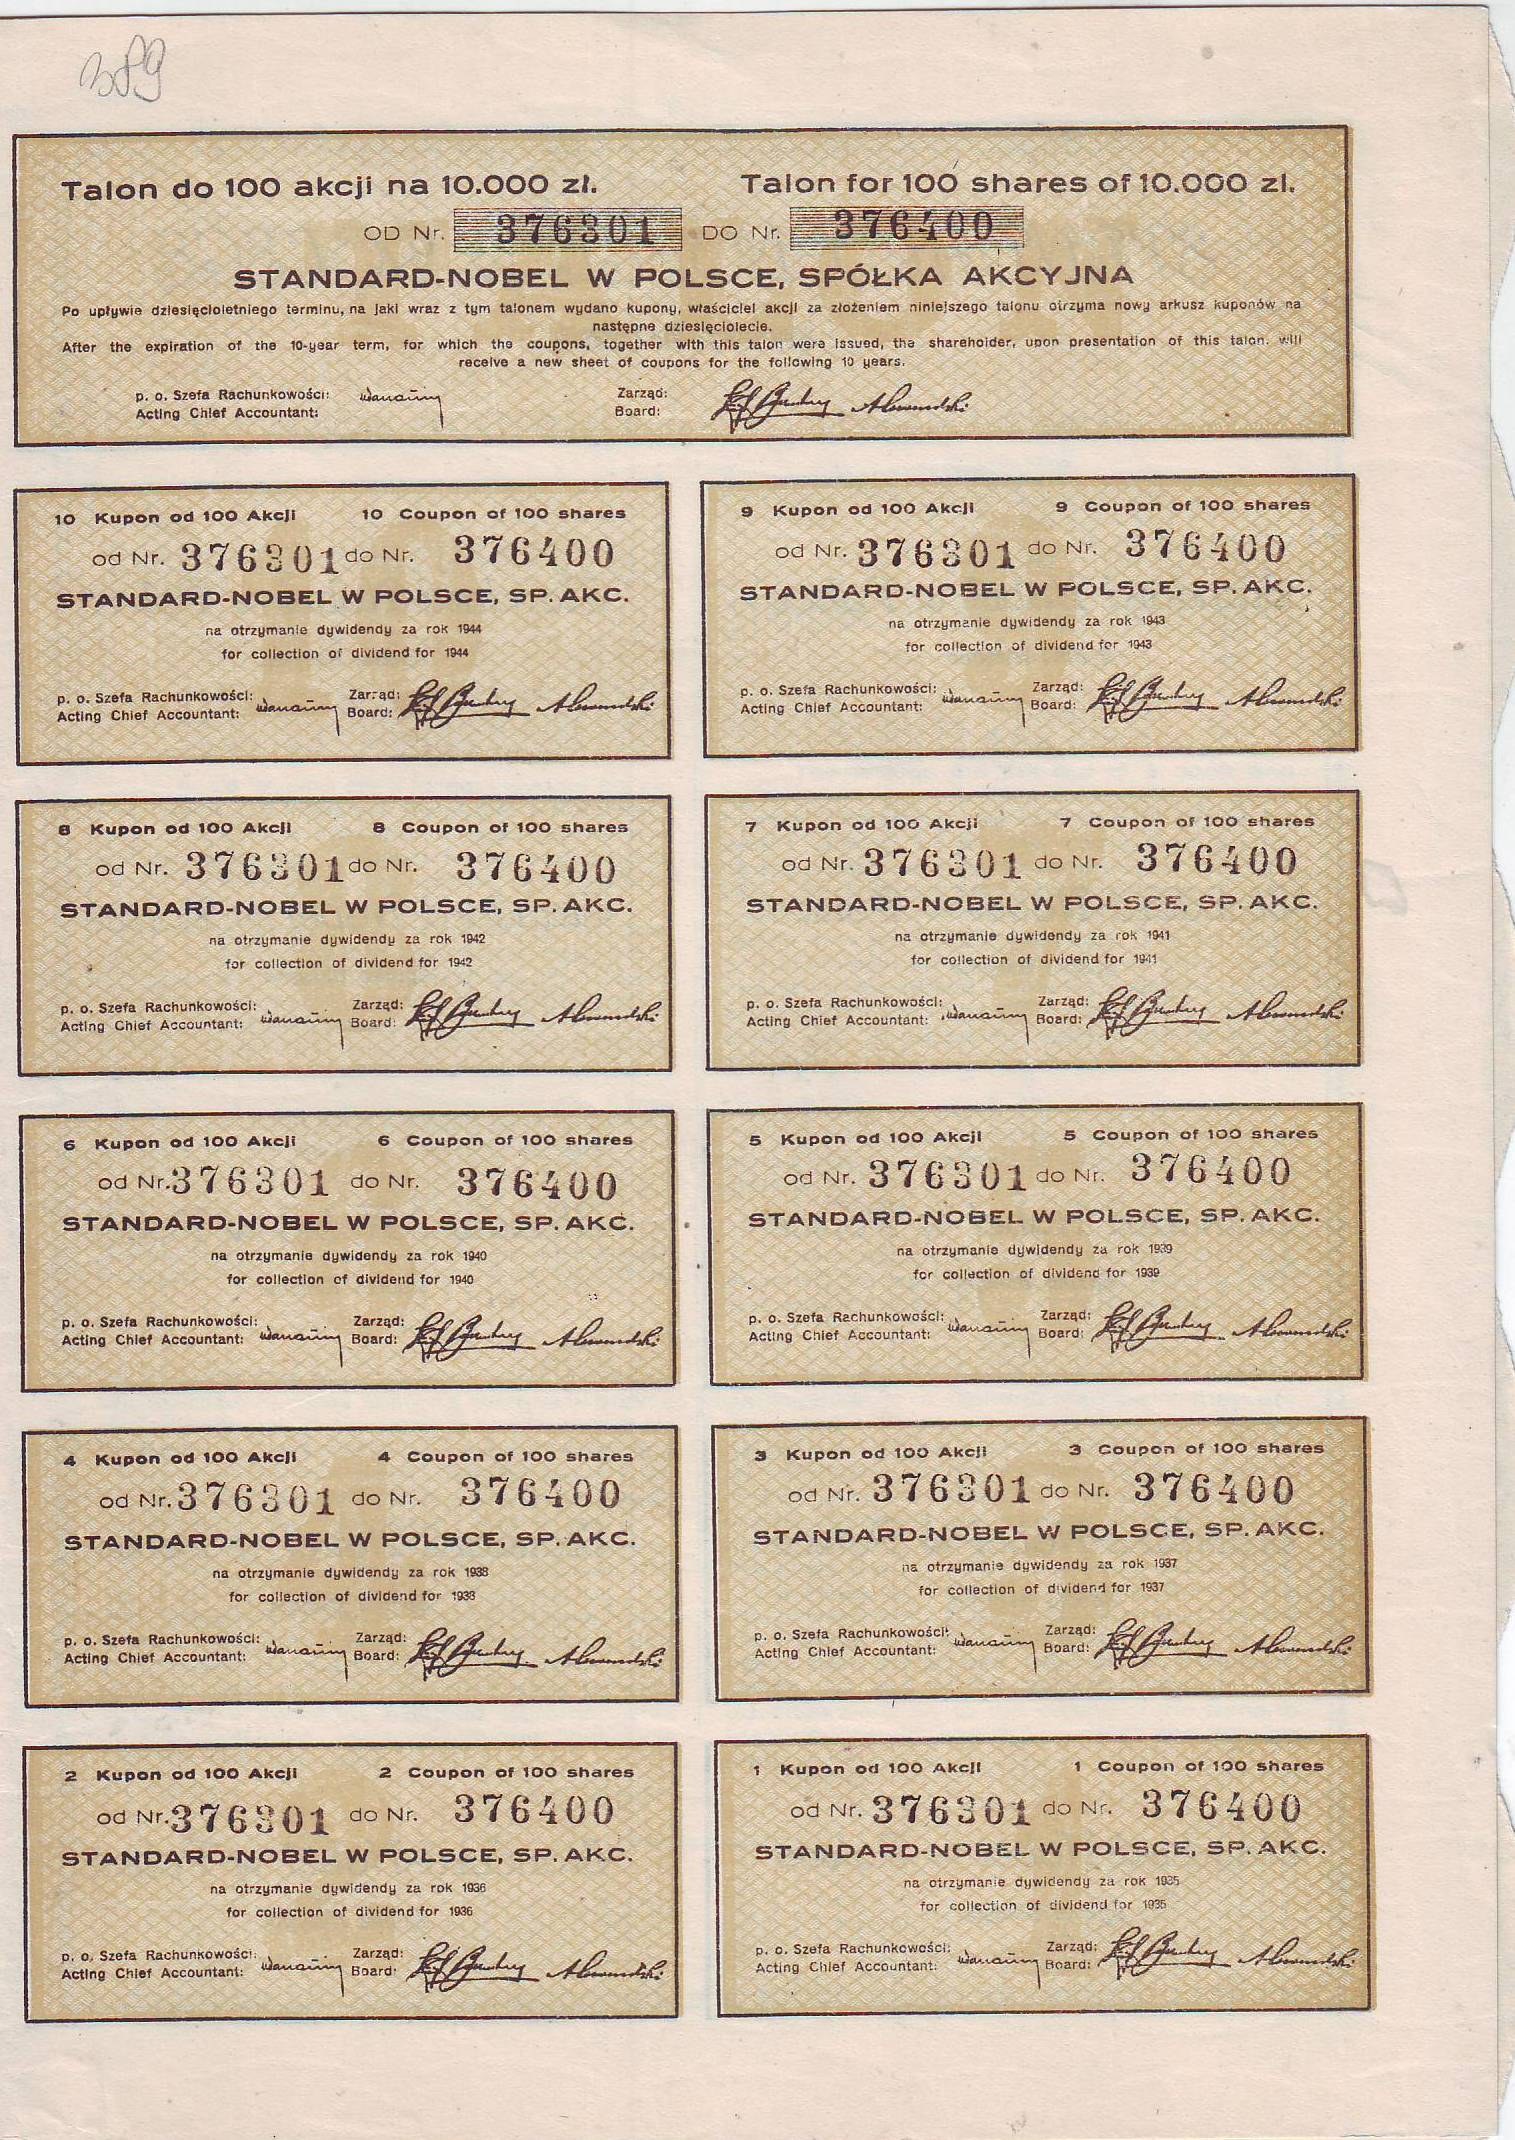 389
Talon do 100 akcji na 10.000 zł. Talon for 100 shares of 10.000 zl.
OD Nr. 376301 DO Nr. 376400
STANDARD-NOBEL W POLSCE, SPÓŁKA AKCYJNA
Po upływie dziesięcioletniego terminu, na jaki wraz z tym talonem wydano kupony, właściciel akcji za złożeniem niniejszego talonu otrzyma nowy arkusz kuponów na
następne dziesięciolecie.
After the expiration of the 10-year term, for which the coupons, together with this talon were issued, the shareholder, upon presentation of this talon, will
receive a new sheet of coupons for the following 10 years.
p. o. Szefa Rachunkowości: Zarząd:
Acting Chief Accountant: Board:
10 Kupon od 100 Akcji 10 Coupon of 100 shares
od Nr. 376301 do Nr. 376400
STANDARD-NOBEL W POLSCE, SP. AKC.
na otrzymanie dywidendy za rok 1944
for collection of dividend for 1944
p. o. Szefa Rachunkowości: Zarząd:
Acting Chief Accountant: Board:
9 Kupon od 100 Akcji 9 Coupon of 100 shares
od Nr. 376301 do Nr. 376400
STANDARD-NOBEL W POLSCE, SP. AKC.
na otrzymanie dywidendy za rok 1943
for collection of dividend for 1943
p. o. Szefa Rachunkowości: Zarząd:
Acting Chief Accountant: Board:
8 Kupon od 100 Akcji 8 Coupon of 100 shares
od Nr. 376301 do Nr. 376400
STANDARD-NOBEL W POLSCE, SP. AKC.
na otrzymanie dywidendy za rok 1942
for collection of dividend for 1942
p. o. Szefa Rachunkowości: Zarząd:
Acting Chief Accountant: Board:
7 Kupon od 100 Akcji 7 Coupon of 100 shares
od Nr. 376301 do Nr. 376400
STANDARD-NOBEL W POLSCE, SP. AKC.
na otrzymanie dywidendy za rok 1941
for collection of dividend for 1941
p. o. Szefa Rachunkowości: Zarząd:
Acting Chief Accountant: Board:
6 Kupon od 100 Akcji 6 Coupon of 100 shares
od Nr. 376301 do Nr. 376400
STANDARD-NOBEL W POLSCE, SP. AKC.
na otrzymanie dywidendy za rok 1940
for collection of dividend for 1940
p. o. Szefa Rachunkowości: Zarząd:
Acting Chief Accountant: Board:
5 Kupon od 100 Akcji 5 Coupon of 100 shares
od Nr. 376301 do Nr. 376400
STANDARD-NOBEL W POLSCE, SP. AKC.
na otrzymanie dywidendy za rok 1939
for collection of dividend for 1939
p. o. Szefa Rachunkowości: Zarząd:
Acting Chief Accountant: Board:
4 Kupon od 100 Akcji 4 Coupon of 100 shares
od Nr. 376301 do Nr. 376400
STANDARD-NOBEL W POLSCE, SP. AKC.
na otrzymanie dywidendy za rok 1938
for collection of dividend for 1938
p. o. Szefa Rachunkowości: Zarząd:
Acting Chief Accountant: Board:
3 Kupon od 100 Akcji 3 Coupon of 100 shares
od Nr. 376301 do Nr. 376400
STANDARD-NOBEL W POLSCE, SP. AKC.
na otrzymanie dywidendy za rok 1937
for collection of dividend for 1937
p. o. Szefa Rachunkowości: Zarząd:
Acting Chief Accountant: Board:
2 Kupon od 100 Akcji 2 Coupon of 100 shares
od Nr. 376301 do Nr. 376400
STANDARD-NOBEL W POLSCE, SP. AKC.
na otrzymanie dywidendy za rok 1936
for collection of dividend for 1936
p. o. Szefa Rachunkowości: Zarząd:
Acting Chief Accountant: Board:
1 Kupon od 100 Akcji 1 Coupon of 100 shares
od Nr. 376301 do Nr. 376400
STANDARD-NOBEL W POLSCE, SP. AKC.
na otrzymanie dywidendy za rok 1935
for collection of dividend for 1935
p. o. Szefa Rachunkowości: Zarząd:
Acting Chief Accountant: Board: